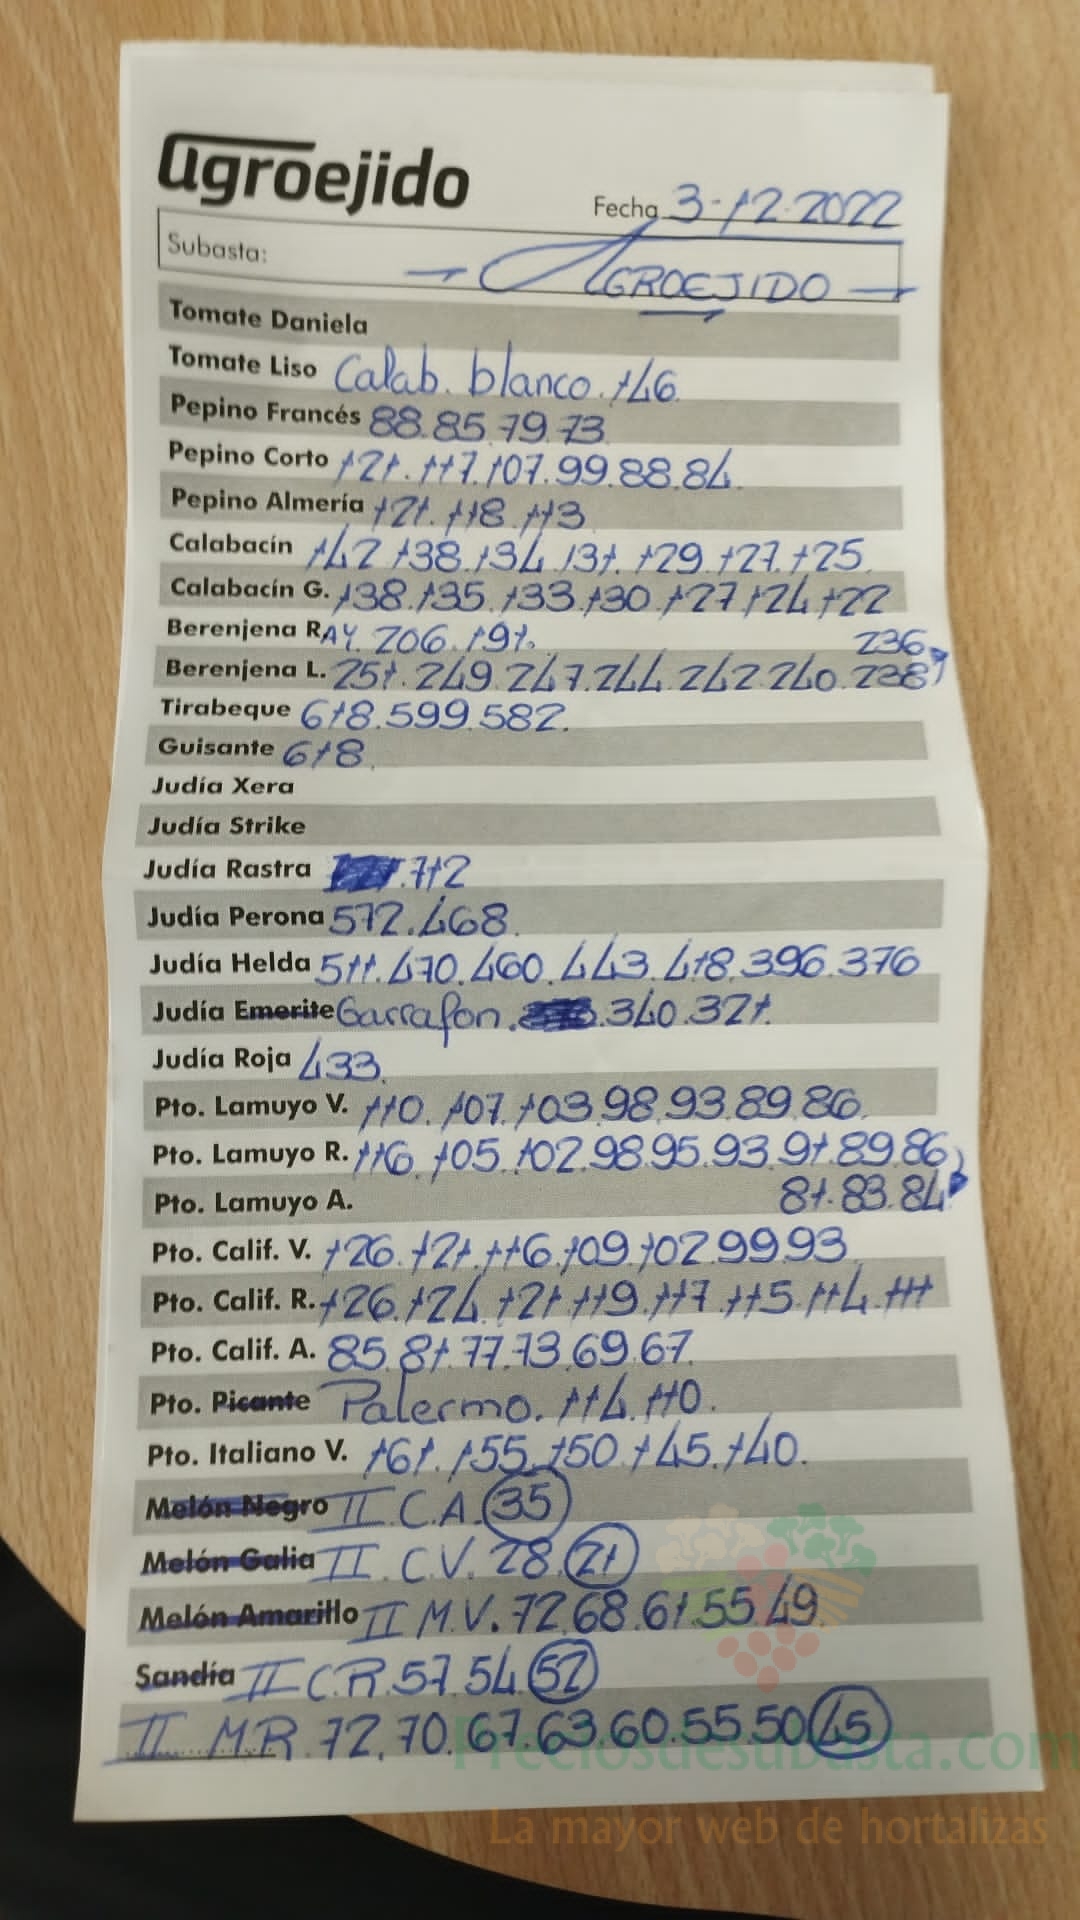 agroejido
Fecha 3-12-2022
Subasta: — AGROEJIDO —
Tomate Daniela
Tomate Liso Calab. blanco. 146
Pepino Francés 88.85.79.73
Pepino Corto 121.117.107.99.88.84
Pepino Almería 121.118.113
Calabacín 142.138.134.131.129.127.125
Calabacín G. 138.135.133.130.127.124.122
Berenjena RAY. 206.191. 236
Berenjena L. 251.249.247.244.242.240.238
Tirabeque 618.599.582.
Guisante 618
Judía Xera
Judía Strike
Judía Rastra .712
Judía Perona 572.468.
Judía Helda 511.470.460.443.418.396.376
Judía Emerite Garrafon. .340.321.
Judía Roja 433.
Pto. Lamuyo V. 110.107.103.98.93.89.86.
Pto. Lamuyo R. 116.105.102.98.95.93.91.89.86
Pto. Lamuyo A. 81.83.84
Pto. Calif. V. 126.121.116.109.102.99.93
Pto. Calif. R. 126.124.121.119.117.115.114.111
Pto. Calif. A. 85.81.77.73.69.67.
Pto. Picante Palermo. 114.110.
Pto. Italiano V. 161.155.150.145.140.
Melón Negro II C.A. 35
Melón Galia II C.V. 28. 21
Melón Amarillo II M.V. 72.68.61.55.49
Sandía II C.R. 57.54. 52
II M.R. 72.70.67.63.60.55.50 45
Preciosdesubasta.com
La mayor web de hortalizas